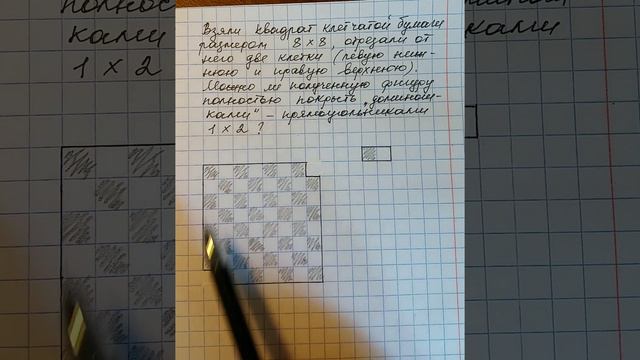 Взяли квадрат клетчатой бумаги
размером 8×8, отрезали от
него две клетки (левую ниж-
нюю и правую верхнюю).
Можно ли полученную фигуру
полностью покрыть „доминош-
ками" – прямоугольниками
1×2 ?
ками
1×2